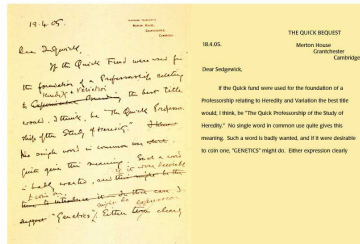 18.4.05.
MERTON HOUSE,
GRANTCHESTER,
CAMBRIDGE.
Dear Sedgewick,
If the Quick Fund were used for
the foundation of a Professorship relating
to Heredity & Variation the best title
would, I think, be "The Quick Professor-
ship of the Study of Heredity".
No single word in common use
quite gives this meaning. Such a word
is badly wanted, and if it were desirable
to coin one,
"Genetics" might do. Either expression clearly
THE QUICK BEQUEST
18.4.05. Merton House
Grantchester
Cambridge
Dear Sedgewick,
If the Quick fund were used for the foundation of a
Professorship relating to Heredity and Variation the best title
would, I think, be "The Quick Professorship of the Study of
Heredity." No single word in common use quite gives this
meaning. Such a word is badly wanted, and if it were desirable
to coin one, "GENETICS" might do. Either expression clearly